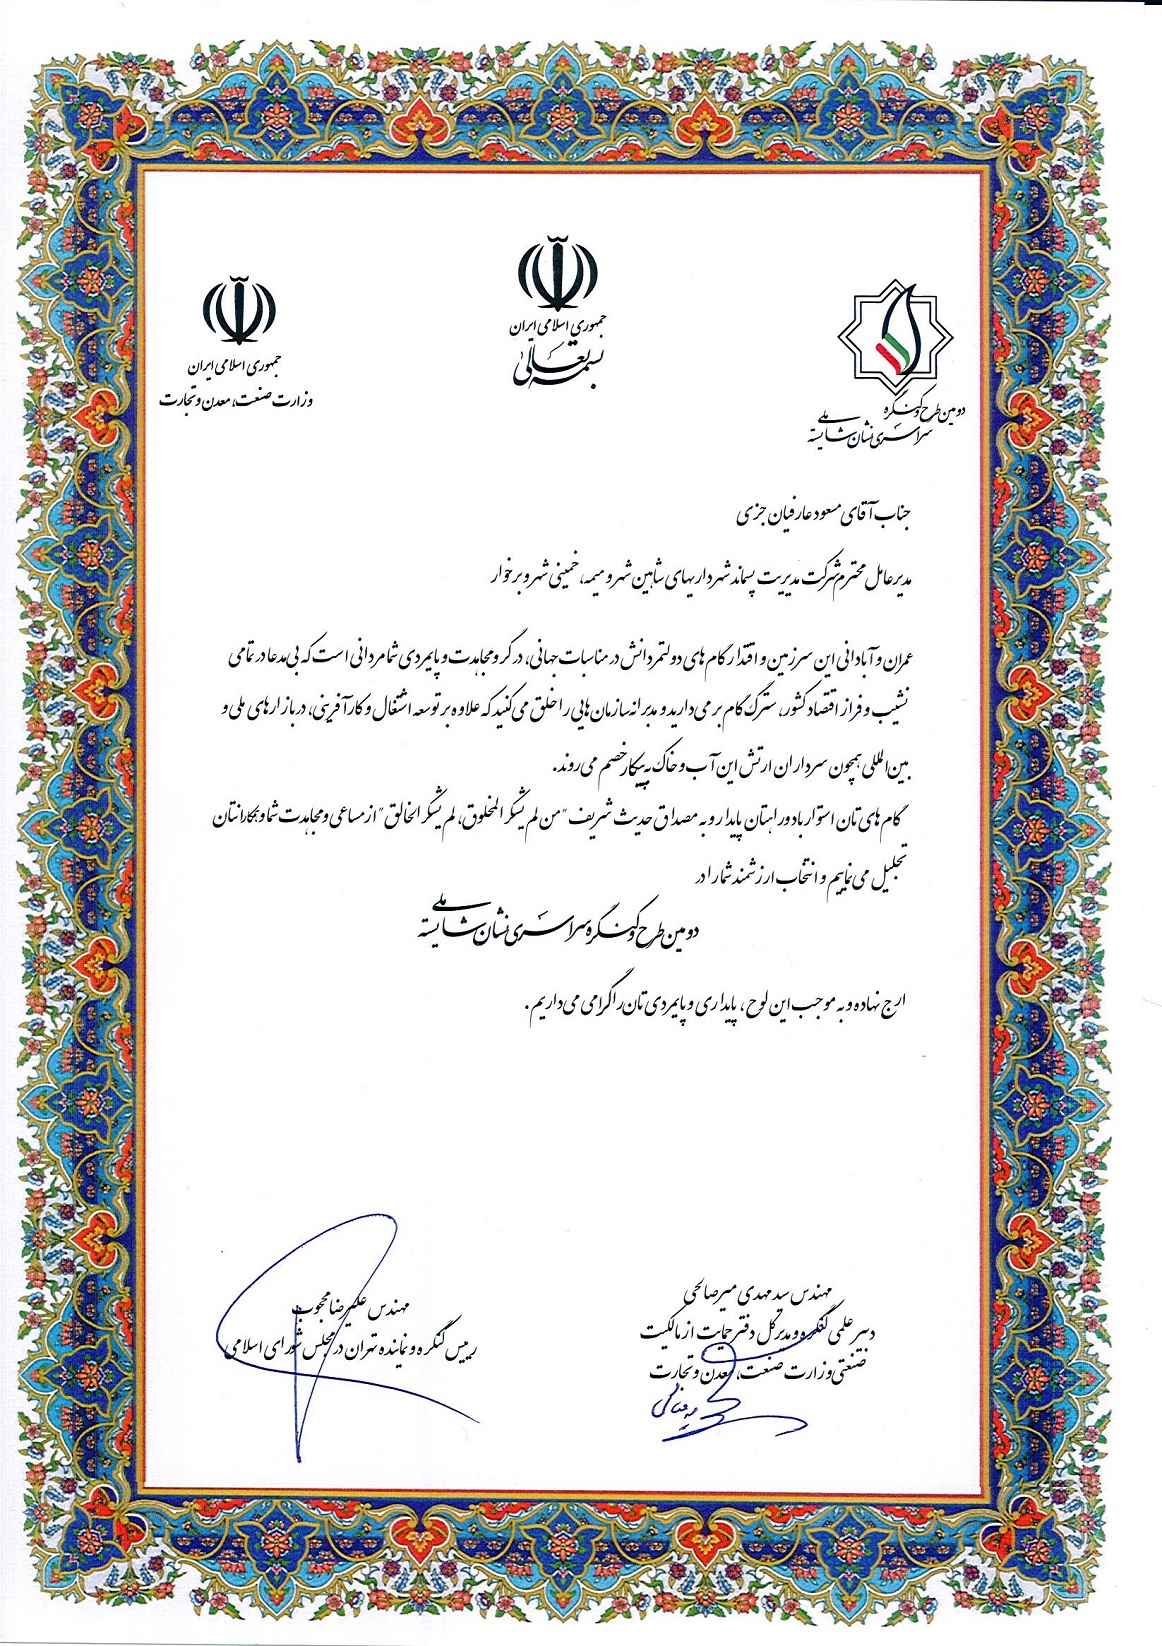 جمهوری اسلامی ایران
بسمه تعالی
جمهوری اسلامی ایران
وزارت صنعت، معدن و تجارت
دومین طرح و کنگره ملی
سراسری نشان شایسته
جناب آقای مسعود عارفیان جزی
مدیرعامل محترم شرکت مدیریت پسماند شهرداریهای شاهین شهر و میمه، خمینی شهر و برخوار
عمران و آبادانی این سرزمین و اقتدار گام های دولتمردانش در مناسبات جهانی، در گرو مجاهدت و پایمردی شما مردانی است که بی مدعا در تمامی
نشیب و فراز اقتصاد کشور، سترگ گام بر می دارید و مدبرانه سازمان هایی را خلق می کنید که علاوه بر توسعه اشتغال و کارآفرینی، در بازارهای ملی و
بین المللی همچون سرداران ارتش این آب و خاک به پیکار خصم می روند.
گام های تان استوار باد و راهتان پایدار و به مصداق حدیث شریف "من لم یشکر المخلوق، لم یشکر الخالق" از مساعی و مجاهدت شما و همکارانتان
تجلیل می نماییم و انتخاب ارزشمند شما را در
دومین طرح و کنگره سراسری نشان شایسته ملی
ارج نهاده و به موجب این لوح، پایداری و پایمردی تان را گرامی می داریم.
مهندس سید مهدی میرصالحی
دبیر علمی کنگره و مدیرکل دفتر حمایت از مالکیت
صنعتی وزارت صنعت، معدن و تجارت
مهندس علیرضا محجوب
رییس کنگره و نماینده تهران در مجلس شورای اسلامی